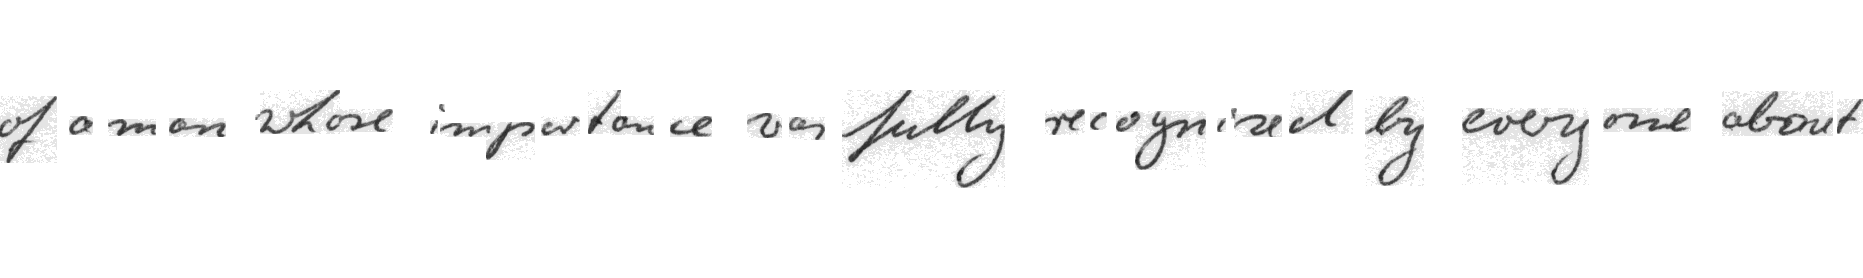 of a man whose importance was fully recognized by everyone about